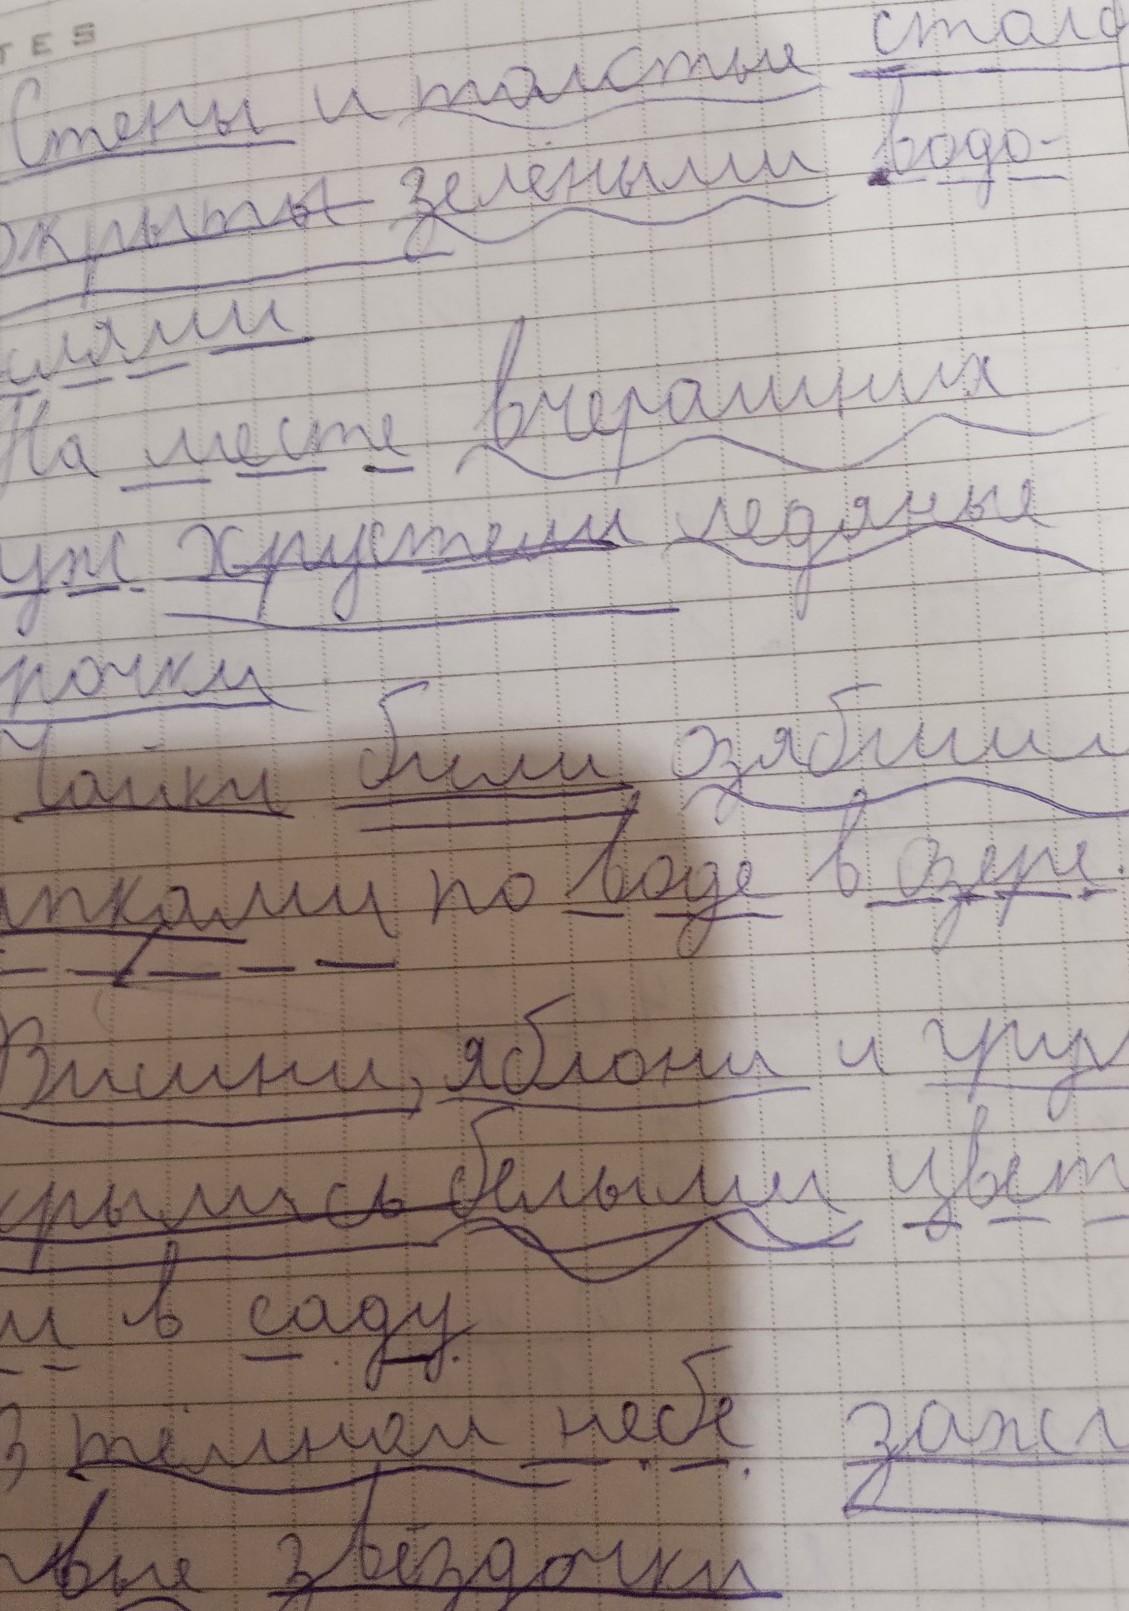 TES
Стены и толстые стол
окрыты зелёными водо-
слями
На месте вчерашних
уж хрустели ледяные
рочки
Чайки били озябшим
апками по воде в озере.
Вишни, яблони и груш
крылись белыми цвет
ми в саду.
В тёмном небе зажг
вые звёздочки